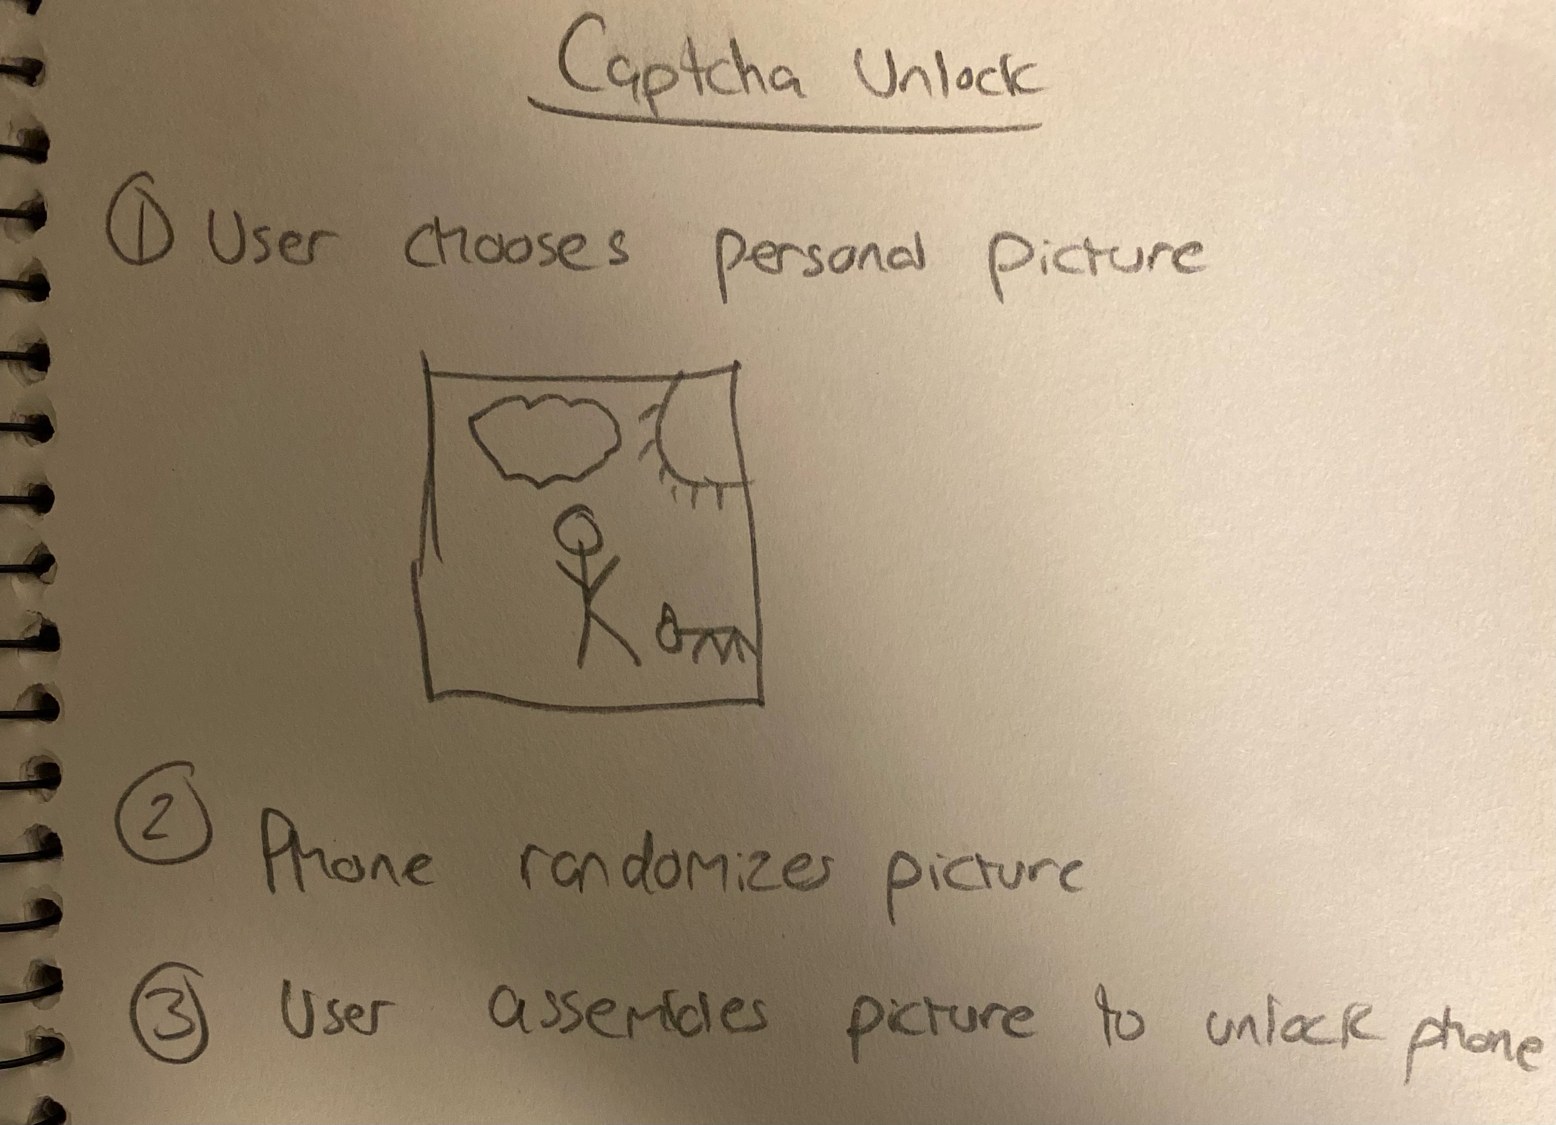 Captcha Unlock
① User chooses personal picture
② Phone randomizes picture
③ User assembles picture to unlock phone